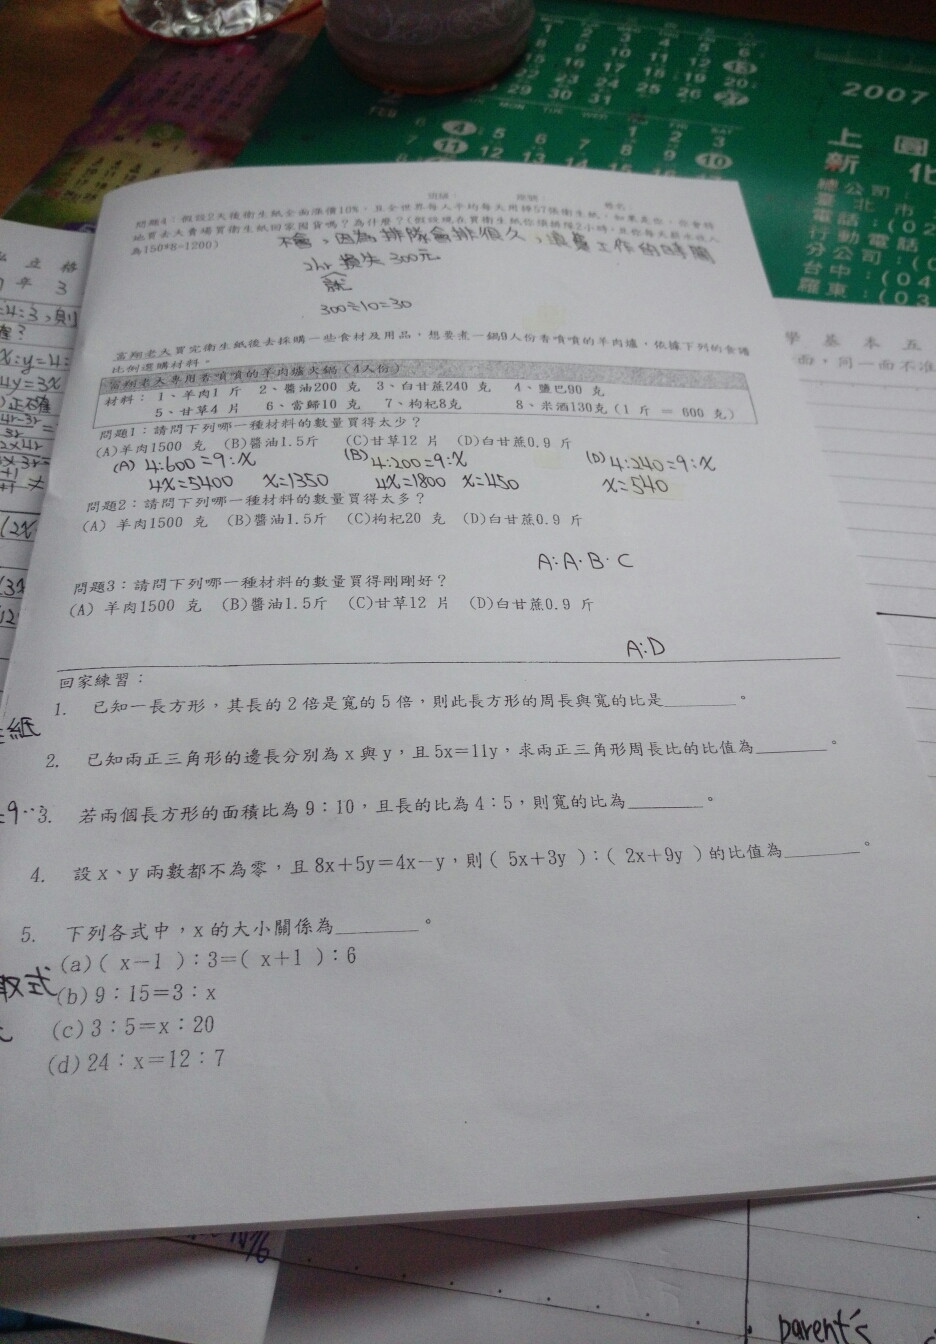 問題4：假設2天後衛生紙全面漲價10%，且全世界每人平均每天用掉57張衛生紙，如果是你，你會特
地買去大賣場買衛生紙回家囤貨嗎？為什麼？(假設現在買衛生紙你須排隊2小時，且你每天薪水收入
為150*8=1200)
不會，因為排隊會排很久，浪費工作的時間
2hr 損失 300元
就
300÷10=30
富翔老大買完衛生紙後去採購一些食材及用品，想要煮一鍋9人份香噴噴的羊肉爐，依據下列的食譜
比例選購材料。
富翔老大專用香噴噴的羊肉爐火鍋(4人份)
材料： 1、羊肉1 斤 2、醬油200 克 3、白甘蔗240 克 4、鹽巴90 克
5、甘草4 片 6、當歸10 克 7、枸杞8克 8、米酒130克(1 斤 = 600 克)
問題1：請問下列哪一種材料的數量買得太少？
(A)羊肉1500 克 (B)醬油1.5斤 (C)甘草12 片 (D)白甘蔗0.9 斤
(A) 4:600=9:x (B) 4:200=9:x (D) 4:240=9:x
4x=5400 x=1350 4x=1800 x=450 x=540
問題2：請問下列哪一種材料的數量買得太多？
(A) 羊肉1500 克 (B)醬油1.5斤 (C)枸杞20 克 (D)白甘蔗0.9 斤
A:A.B.C
問題3：請問下列哪一種材料的數量買得剛剛好？
(A) 羊肉1500 克 (B)醬油1.5斤 (C)甘草12 片 (D)白甘蔗0.9 斤
A:D
回家練習：
1. 已知一長方形，其長的2倍是寬的5倍，則此長方形的周長與寬的比是________。
2. 已知兩正三角形的邊長分別為x與y，且5x=11y，求兩正三角形周長比的比值為________。
3. 若兩個長方形的面積比為9：10，且長的比為4：5，則寬的比為________。
4. 設x、y兩數都不為零，且8x+5y=4x-y，則( 5x+3y )：( 2x+9y )的比值為________。
5. 下列各式中，x的大小關係為________。
(a)( x-1 )：3=( x+1 )：6
(b)9：15=3：x
(c)3：5=x：20
(d)24：x=12：7
2007
上園
新化
總公司：
臺北市
電話：(02
行動電話
分公司：(0
台中：(04
羅東：(03
學 基 本 五
面，同一面不准
4:3，則
x:y=4:
4y=3x
正確
紙
取式
parent's